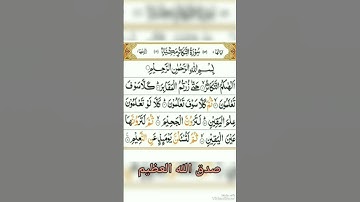 سُورَةُ التَّكَاثُرِ مَكِّيَّةٌ
بِسْمِ اللّٰهِ الرَّحْمٰنِ الرَّحِيْمِ
اَلْهٰىكُمُ التَّكَاثُرُ حَتّٰى زُرْتُمُ الْمَقَابِرَ كَلَّا سَوْفَ
تَعْلَمُوْنَ ثُمَّ كَلَّا سَوْفَ تَعْلَمُوْنَ كَلَّا لَوْ تَعْلَمُوْنَ
عِلْمَ الْيَقِيْنِ لَتَرَوُنَّ الْجَحِيْمَ ثُمَّ لَتَرَوُنَّهَا
عَيْنَ الْيَقِيْنِ ثُمَّ لَتُسْـَٔلُنَّ يَوْمَىِٕذٍ عَنِ النَّعِيْمِ
صدق الله العظيم